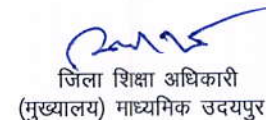 जिला शिक्षा अधिकारी
(मुख्यालय) माध्यमिक उदयपुर